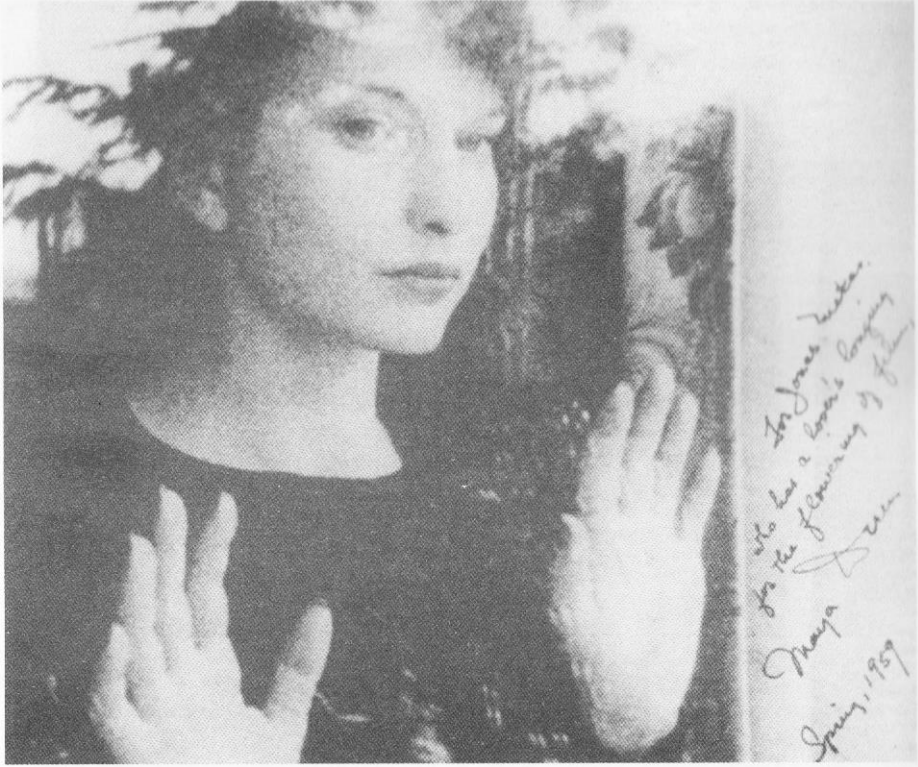 For Jonas Mekas.
who has a lover's longing
for the flowering of film
Maya Deren
Spring, 1959